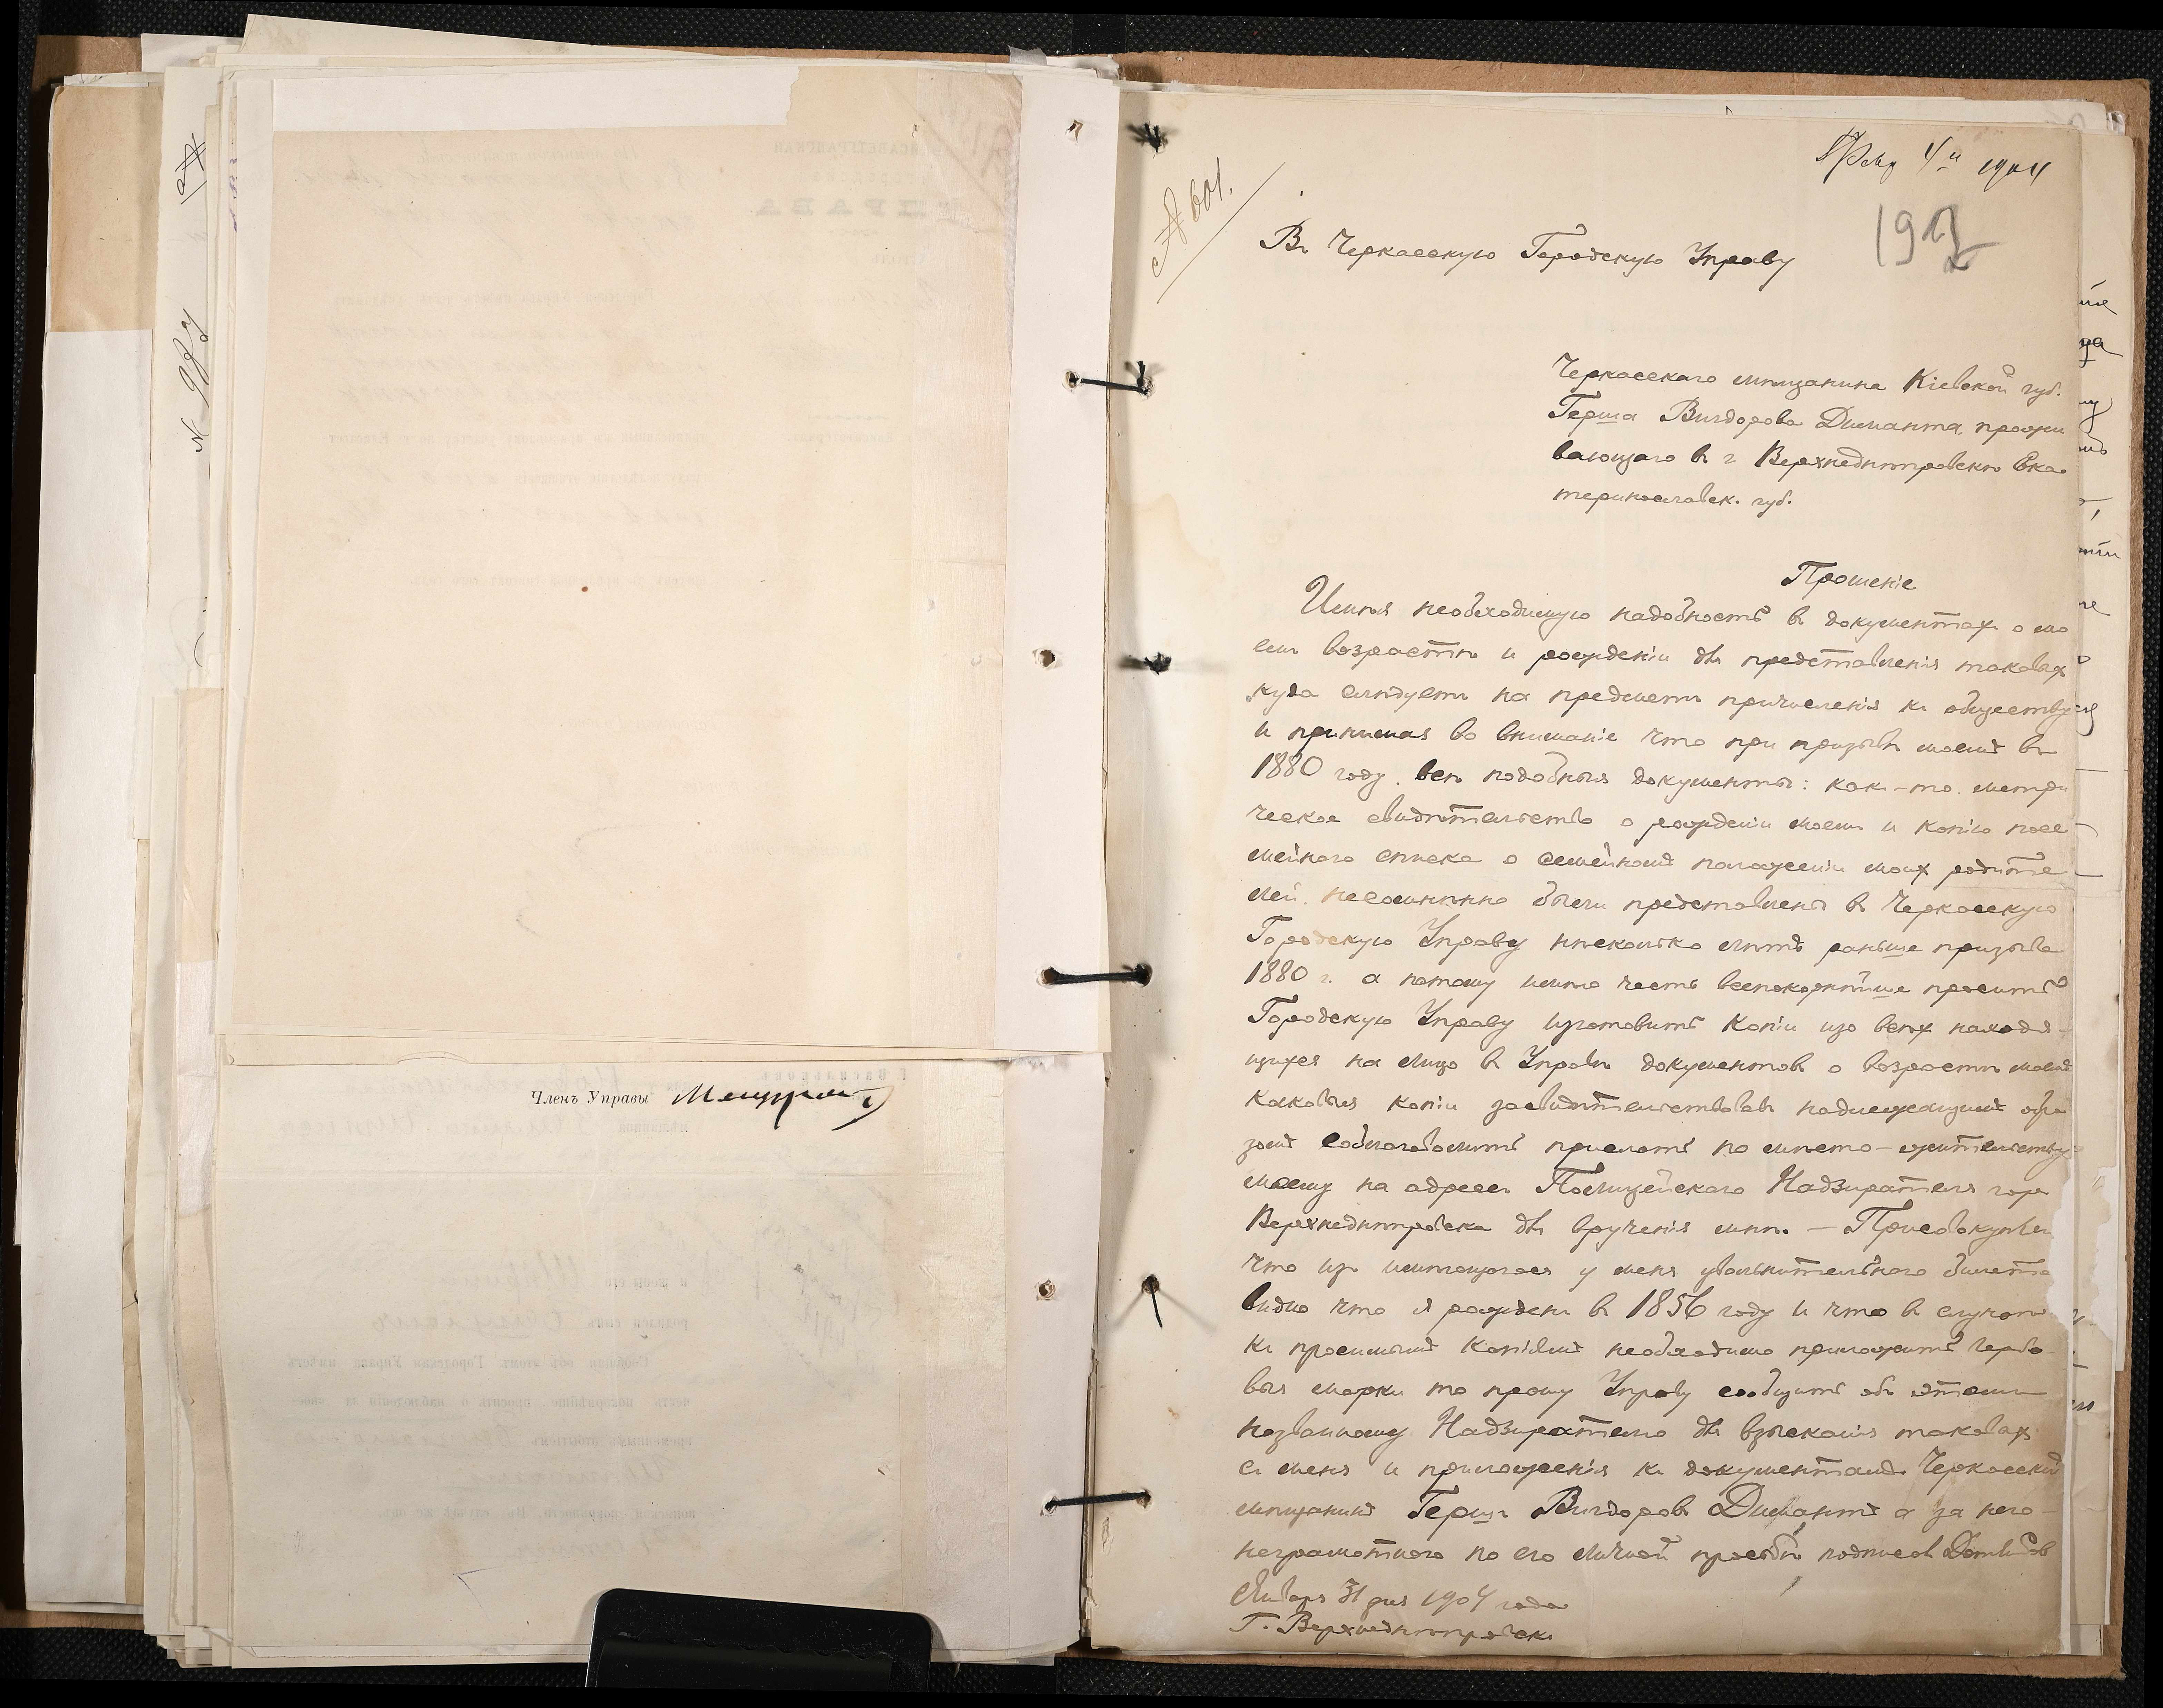 Членъ Управы
№ 601.
Февр 4го 1904
192
Въ Черкасскую Городскую Управу
Черкасскаго мѣщанина Кіевской губ.
Герша Вигдорова Диманта, прожи
вающаго въ г Верхнеднѣпровскѣ Ека
теринославск. губ.
Прошеніе
Имѣя необходимую надобность въ документахъ о мо
емъ возрастѣ и рожденіи для представленія таковыхъ
куда слѣдуетъ на предметъ причисленія къ обществу
и принимая во вниманіе что при призывѣ моемъ въ
1880 году. всѣ подобныя документы: какъ-то метри
ческое свидѣтельство о рожденіи моемъ и копію посе
мейнаго списка о семейномъ положеніи моихъ родите
лей, несомнѣнно были представлены въ Черкасскую
Городскую Управу нѣсколько лѣтъ раньше призыва
1880 г. а потому имѣю честь всепокорнѣйше проситъ
Городскую Управу изготовить копіи изо всѣхъ находя-
щихся на лицо въ Управѣ документовъ о возрастѣ моемъ
каковыя копіи засвидѣтельствовавъ надлежащимъ обра
зомъ соблаговолить прислать по мѣсто-жительству
моему на адресъ Полицейскаго Надзирателя гор
Верхнеднѣпровска для врученія мнѣ. — Присовокупляю
что изъ имѣющагося у меня увольнительнаго билета
видно что я рожденъ въ 1856 году и что въ случаѣ
къ просимымъ копіямъ необходимо приложить гербо
выя марки то прошу Управу сообщить объ этомъ
названному Надзирателю для взысканія таковыхъ
съ меня и приложенія къ документамъ. Черкасскій
мѣщанинъ Гершъ Вигдоровъ Димантъ а за него
неграмотнаго по его личной просьбѣ подписалъ
Января 31 дня 1904 года
Г. Верхнеднѣпровскъ